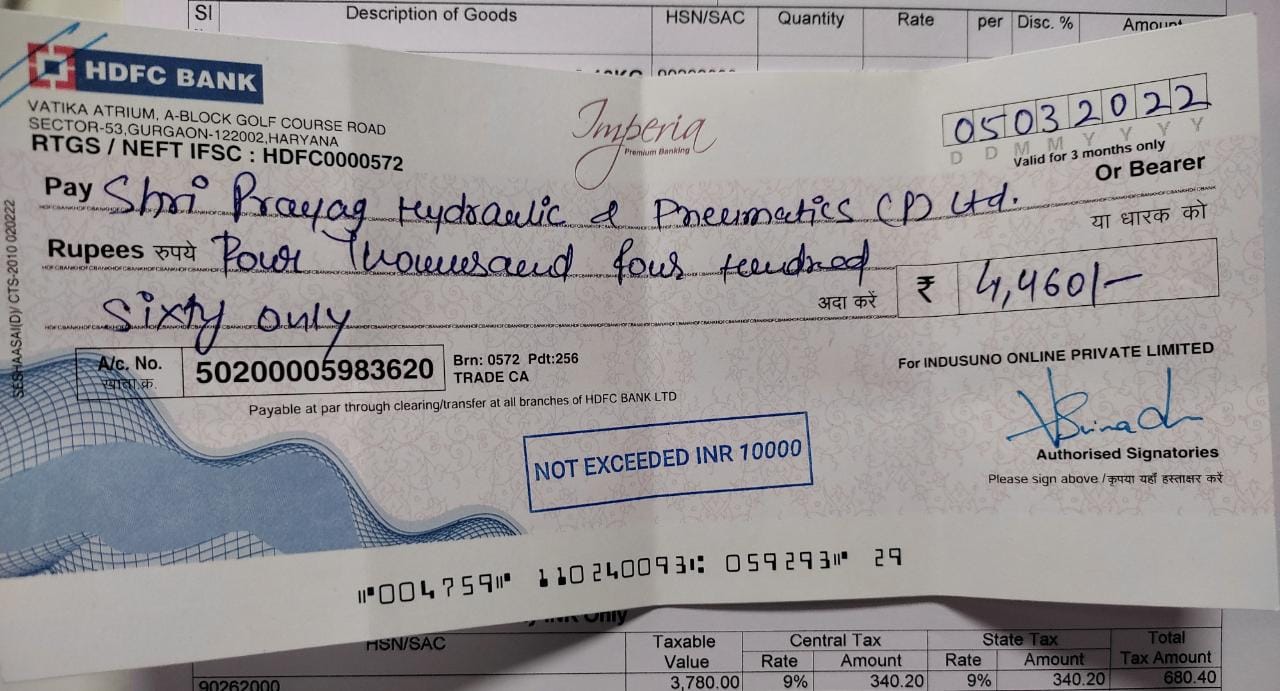 SI Description of Goods HSN/SAC Quantity Rate per Disc. % Amount
HDFC BANK
VATIKA ATRIUM, A-BLOCK GOLF COURSE ROAD
SECTOR-53,GURGAON-122002,HARYANA
RTGS / NEFT IFSC : HDFC0000572
Imperia
Premium Banking
05032022
D D M M Y Y Y Y
Valid for 3 months only
Pay Shri Prayag Hydraulic & Pneumatics (P) Ltd. Or Bearer
या धारक को
Rupees रुपये Four Thousand four Hundred
Sixty only अदा करें ₹ 4,460/-
A/c. No.
खाता क्र.
50200005983620
Brn: 0572 Pdt:256
TRADE CA
For INDUSUNO ONLINE PRIVATE LIMITED
Payable at par through clearing/transfer at all branches of HDFC BANK LTD
NOT EXCEEDED INR 10000
Authorised Signatories
Please sign above / कृपया यहाँ हस्ताक्षर करें
SESHAASAI(D)/ CTS-2010 020222
⑈004759⑈ 110240093⑆ 059293⑈ 29
Only
HSN/SAC Taxable Value Central Tax State Tax Total Tax Amount
Rate Amount Rate Amount
90262000 3,780.00 9% 340.20 9% 340.20 680.40